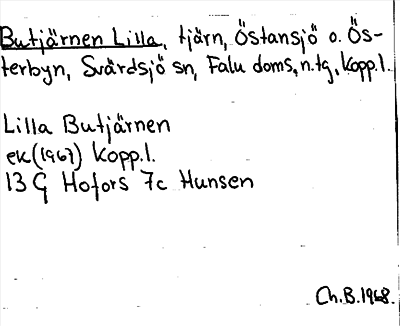 Butjärnen Lilla, tjärn, Östansjö o. Ös-
terbyn, Svärdsjö sn, Falu doms. n. tg, Kopp.l.
Lilla Butjärnen
ek(1967) Kopp.l.
13 G Hofors 7c Hunsen
Ch.B.1968.